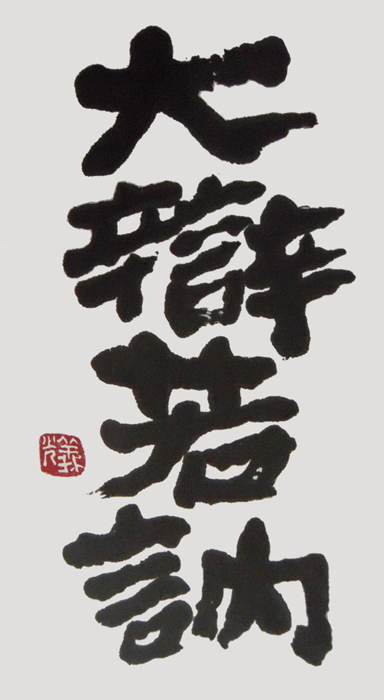 大辯若訥